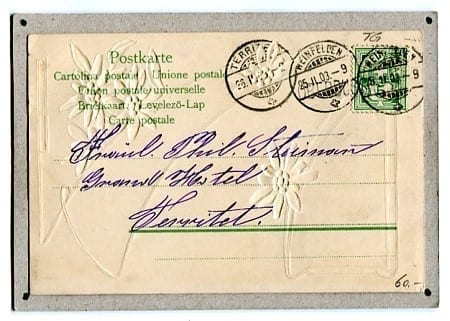 TG
Postkarte
Cartolina postale Unione postale
Union postale universelle
Briefkaart Levelezö-Lap
Carte postale
TERRITET
26.II.03
WEINFELDEN
25.II.03.-9
WEINFELDEN
25.II.03.-9
Fräul. Phil. Steiman
Grand Hotel
Territet.
60.-